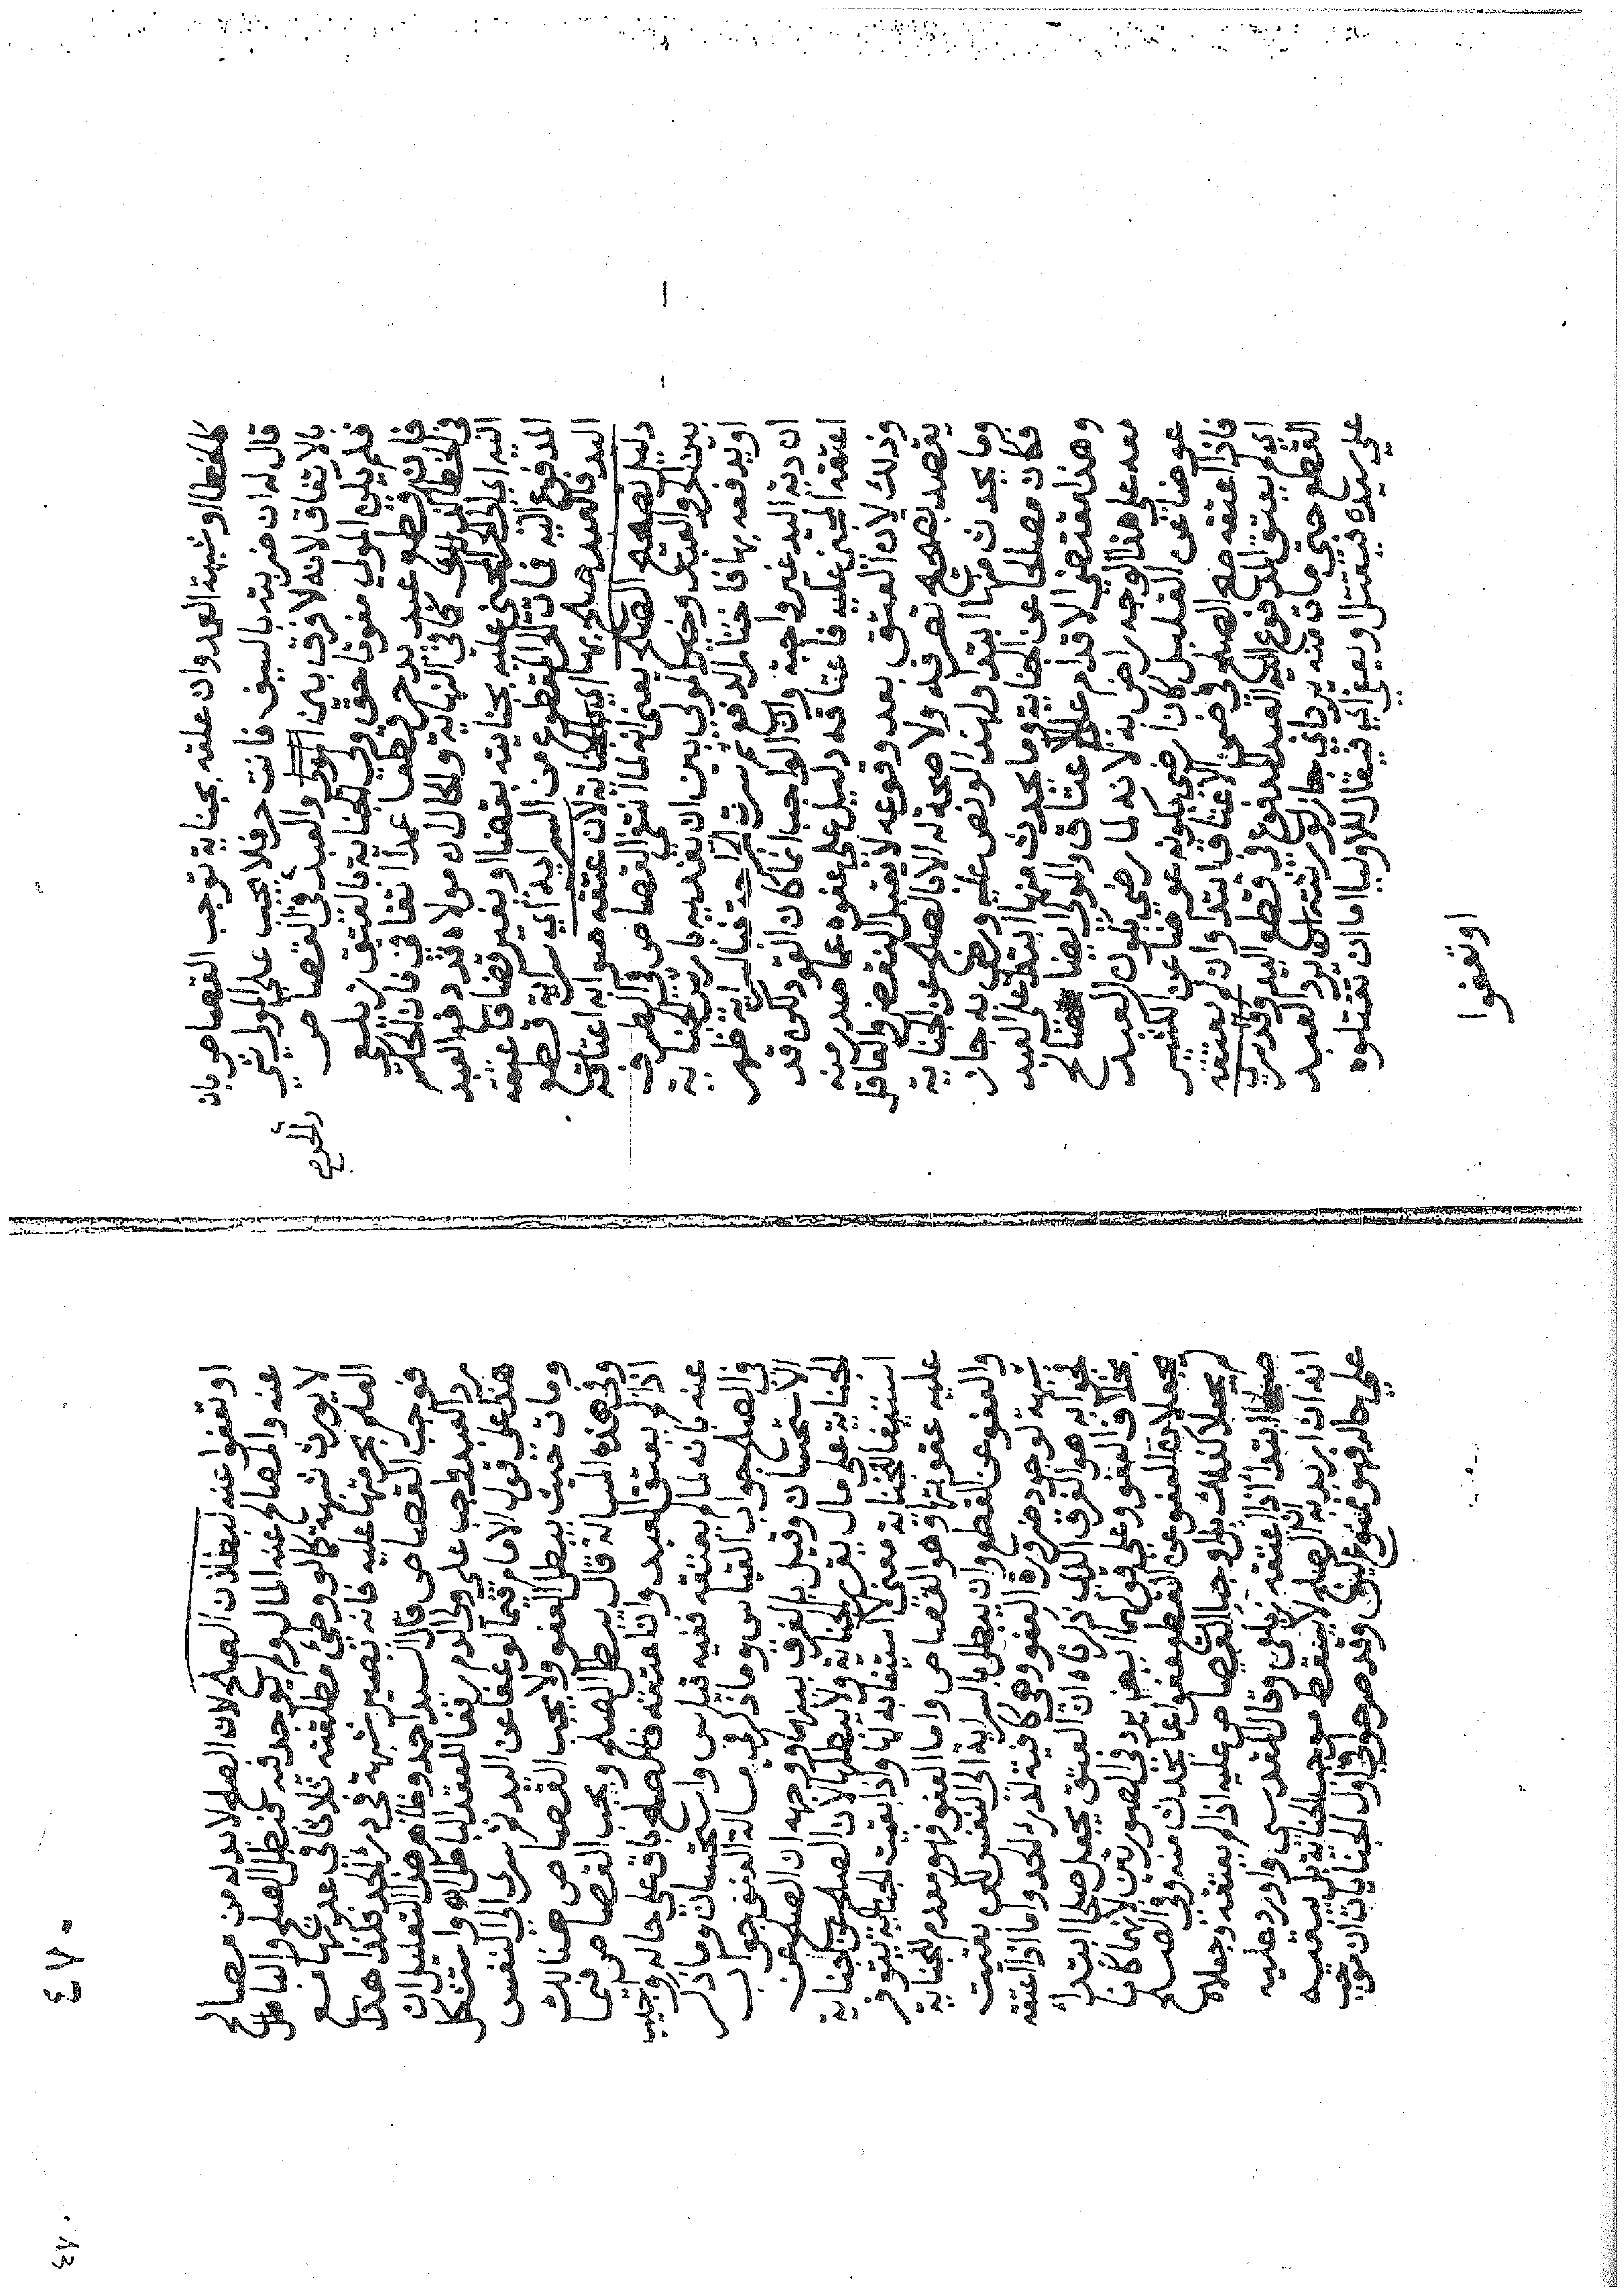 كالخطا او شبهة العمد وان علقه بجناية توجب القصاص بان
قال له ان ضربته بالسيف فانت حر فلا يجب علي المولي شي
بالاتفاق لانه لا فرق بين الحر والعبد في القصاص
فلم يكن المولي مفوتا حق ولي الجناية بالعتق زيلعي
فان قطع عبد يد حر قطعا عمدا فان الحكم
في الخطا كذلك كما في النهاية والحال ان مولاه قد دفع العبد
اليه اي الي الحر المجني عليه بجنايته بقضا او بغير قضا فاعتقه
المدفوع اليه فمات الحر المقطوع من السراية اي سراية قطع
اليد فالعبد صلح بها اي بالجناية لان عتقه صوابه اعتاقه
دليل تصحيح الصلح يعني انه لما انتفي القصاص في الطرف
بين الحر والعبد وخير المولي بين ان يفديه بارش الجناية
او يدفعه بها فاختار الدفع ثم سرت الجراحة فبالسراية ظهر
ان دية اليد غير واجبة وان الواجب انما كان القود لكن قد
اعتقه المجني عليه فاعتاقه دليل علي عفوه عما صدر منه
وذلك لان العتق بعد وقوعه لا يقبل النقض والعاقل
يقصد تصحيح تصرفه ولا صحة له الا بالصلح عن الجناية
وما يحدث منها ابتدا ولهذا لو نص عليه ورضي به جاز
فكان مصالحا عن الجناية وما يحدث منها ابتدا علي العبد
وهذا مقتضي الاقدام علي الاعتاق والمولي ايضا مصالح
معه علي هذا الوجه راض به لانه لما رضي بكون العبد
عوضا عن القليل كان ارضي بكونه عوضا عن الكثير
فاذا اعتقه صح الصلح في ضمن الاعتاق ابتدا وان لم يعتقه
اي لم يعتق المدفوع اليه العبد المدفوع في قطع اليد وقد سري
القطع حتي مات منه يرد اي جاز لورثته ان يرد العبد
علي سيده فيقتل او يعفي اي فيقال للاوليا اما ان تقتلوه
او تعفوا
او تعفوا عنه لبطلان الصلح لان الصلح لا بد له من مصالح
عنه والمصالح عنه المال ولم يوجد فبطل الصلح والباطل
لا يورث شبهة كما لو وطئ مطلقته ثلاثا في عدتها مع
العلم بحرمتها عليه فانه لا يصير شبهة في درء الحد فكذا هذا
فوجب القصاص قال السيد احمد وظاهر هذا التعليل ان
رد العبد واجب علي ولي الدم رفعا للعقد الباطل اه واستشكل
هذا علي قول الامام فيما لو عفا عن اليد ثم سري الي النفس
ومات حيث يبطل العفو ولا يجب القصاص هنالك
وفي هذه المسالة قال يبطل الصلح ويجب القصاص فيما
اذا لم يعتق العبد وان اعتقه فالصلح باق علي حاله واجيب
عنه بانه لما لم يعتقه ففيه قياس واستحسان وما ذكر
في الصلح جواب القياس وما ذكر في مسالة العفو جواب
الاستحسان وقيل بالفرق بينهما ووجهه ان الصلح عن
الجناية علي مال يقرر الجناية ولا يبطلها لان الصلح عن الجناية
استيفا للجناية معني باستيفا بدلها واذا بقيت الجناية يتوفر
عليه عقوبتها وهو القصاص واما العفو فهو معدم للجناية
والعفو عن القطع وان بطل بالسراية الي النفس لكن بقيت
شبهة لوجود صورة العفو وهي كافية لدرء الحد واما اذا اعتقه
فجوابه هو الفرق الذي ذكرناه ان العتق يجعل صلحا ابتداء
بخلاف العفو وعلي قولهما ايضا يرد في الصورتين لانهما كانا
يجعلان العفو عن القطع عفوا عما يحدث منه وفي الصلح
لم يجعلا كذلك بل اوجبا القصاص عليه اذا لم يعتقه وجعلاه
صلحا ابتدا اذا اعتقه زيلعي وقال المقدسي واورد عليه
انه ان اريد به ان الصلح لا يسقط موجب الجناية بل يبقيه
علي حاله فهو ممنوع كيف وقد صرح في اول الجنايات ان موجب
٤٧٠